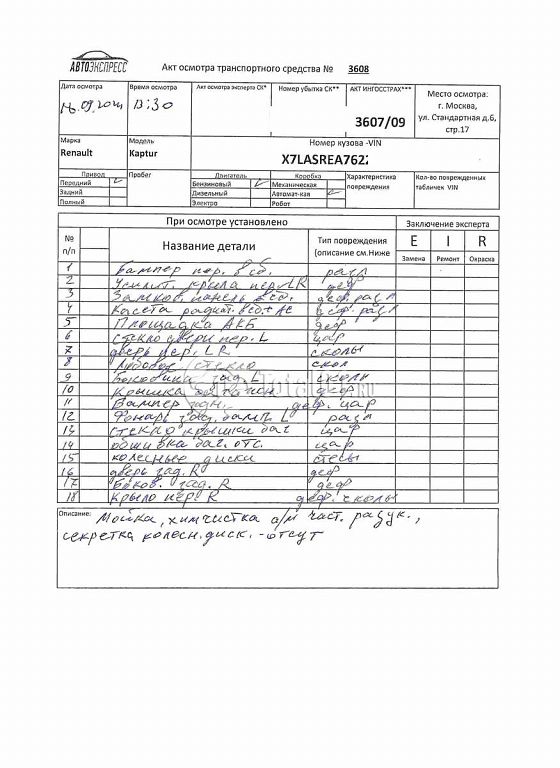 АВТОЭКСПРЕСС
Акт осмотра транспортного средства № 3608
Дата осмотра Время осмотра Акт осмотра эксперта СК* Номер убытка СК** АКТ ИНГОССТРАХ*** Место осмотра:
г. Москва,
13:30 3607/09 ул. Стандартная д.6,
стр.17
Марка Модель Номер кузова -VIN
Renault Kaptur X7LASREA762
Привод Пробег Двигатель Коробка Характеристика повреждения Кол-во поврежденных табличек VIN
Передний Бензиновый Механическая
Задний Дизельный Автомат-кая
Полный Электро Робот
При осмотре установлено Заключение эксперта
№ п/п Название детали Тип повреждения (описание см.Ниже E I R
Замена Ремонт Окраска
1 Бампер пер. в сб. разл
2 Усилит. крыла пер. LR деф
3 Замков. панель в сб. деф. разл
4 Касета радиат. в сб. + АС деф. разл
5 Площадка АКБ деф
6 Стекло двери пер. L цар
7 дверь пер. LR сколы
8 Лобовое стекло скол
9 Боковина зад. L сколы
10 Крышка деф
11 Бампер задн. деф. цар
12 Фонарь зад. бамп. L разл
13 стекло крышки баг цар
14 обшивка баг. отс. цар
15 колесные диски стесы
16 дверь зад. R деф
17 Боков. зад. R деф
18 Крыло пер. R деф. сколы
Описание: Мойка, химчистка а/м част. разук.,
секретка колесн. диск. - отсут